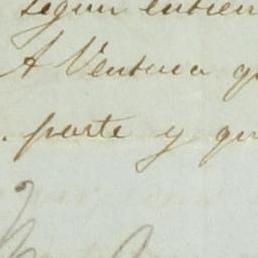 segun entien
A Ventura q
parte y qu